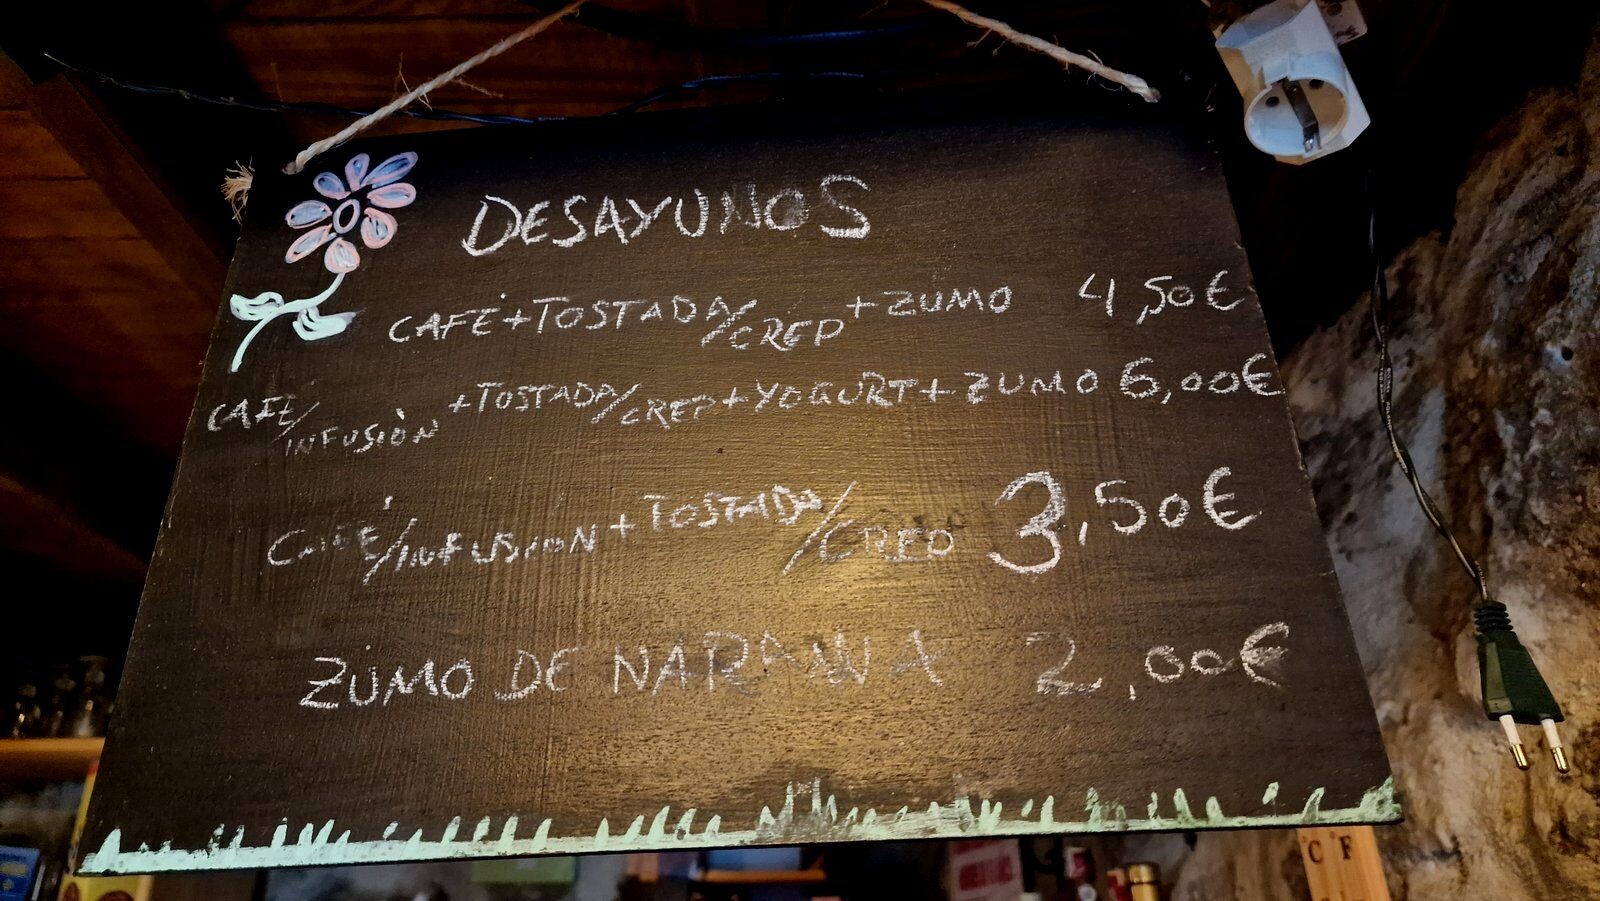 DESAYUNOS
CAFÉ+TOSTADA/CRÉP+ZUMO 4,50€
CAFE/INFUSIÒN+TOSTADA/CREP+YOGURT+ZUMO 6,00€
CAFÉ/INFUSION+TOSTADA/CREP 3,50€
ZUMO DE NARANJA 2,00€
C F